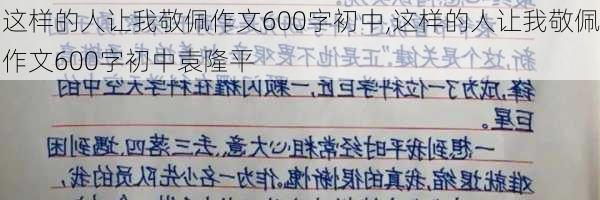 这样的人让我敬佩作文600字初中,这样的人让我敬佩
作文600字初中袁隆平
新,这个是关键。"正是他也不畏艰
成为了一位科学巨匠,一颗闪耀在科学天空中的
巨星。
一想到我平时经常粗心大意,丢三落四,遇到困
难就退缩,我真的很惭愧。作为一名少先队员的我,